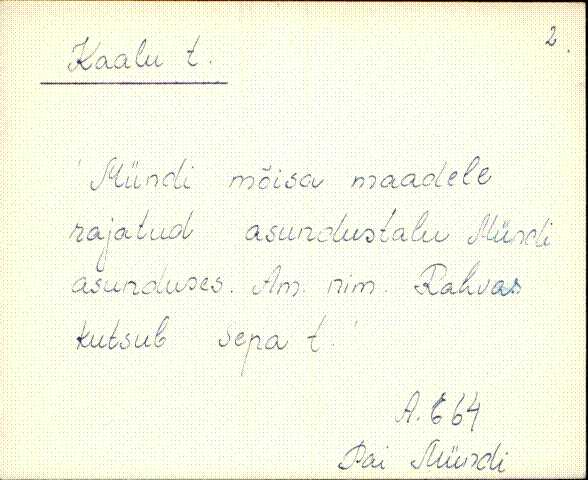 2.
Kaalu t.
'Mündi mõisa maadele
rajatud asundustalu Mündi
asunduses. Am. nim. Rahvas
kutsub sepa t.'
A. E 64
Pai Mündi